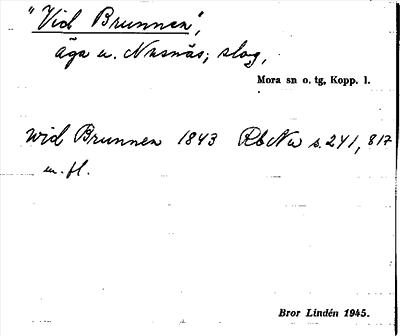 "Vid Brunnen",
äga u. Nusnäs; slog,
Mora sn o. tg, Kopp. l.
wid Brunnen 1843 RbNu s. 241, 817
m. fl.
Bror Lindén 1945.